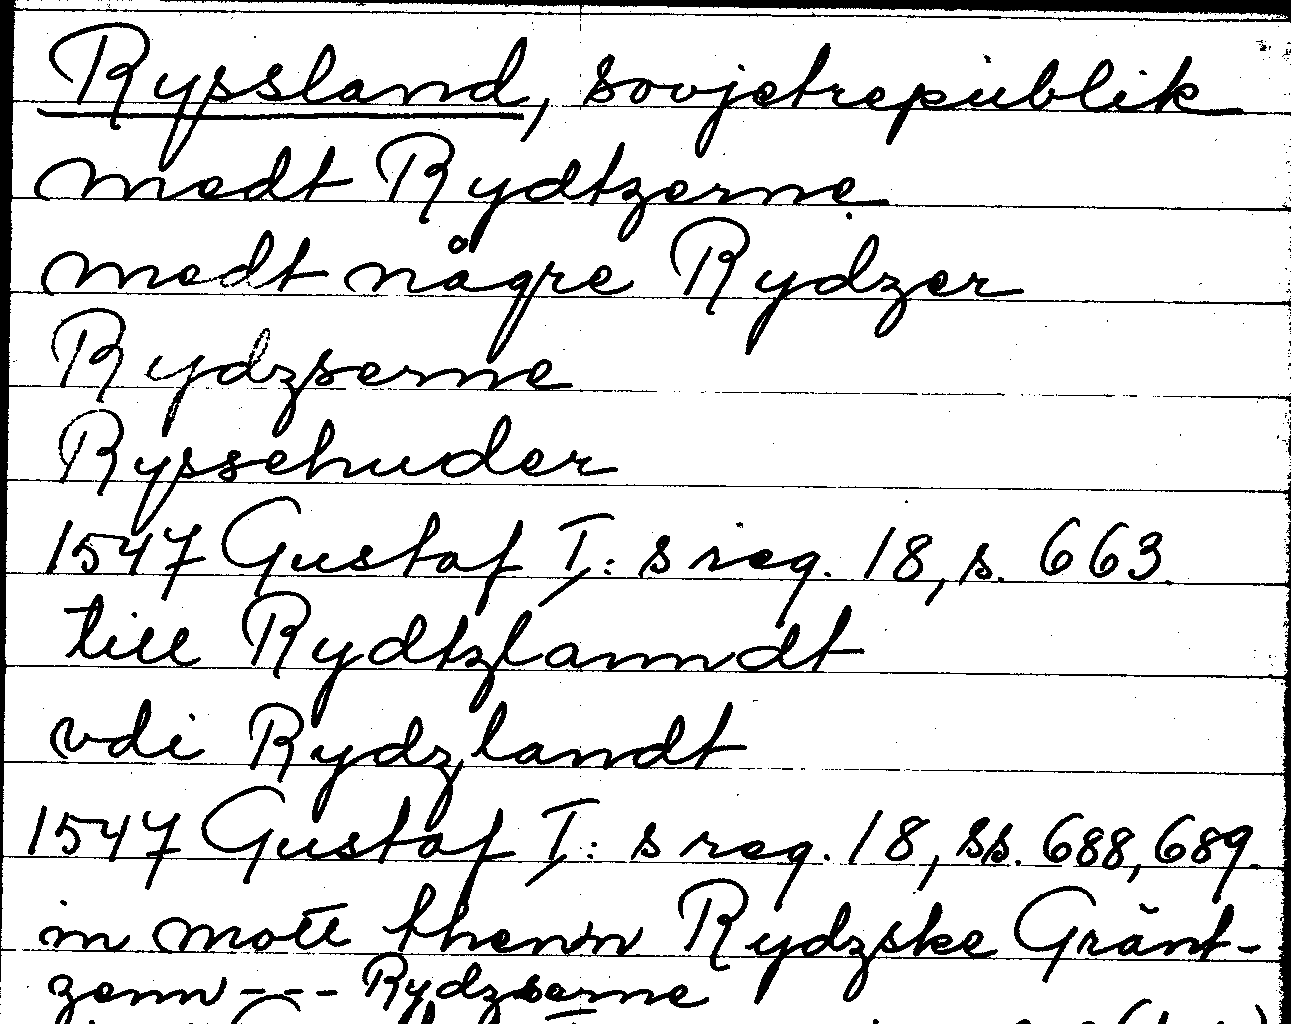 Ryssland, sovjetrepublik
medt Rydtzerne
medt någre Rydzer
Rydzserne
Ryssehuder
1547 Gustaf I: s reg. 18, s. 663.
till Rydtzlanndt
vdi Rydzlandt
1547 Gustaf I: s reg. 18, ss. 688, 689.
in mott thenn Rydzske Gränt-
zenn --- Rydzserne